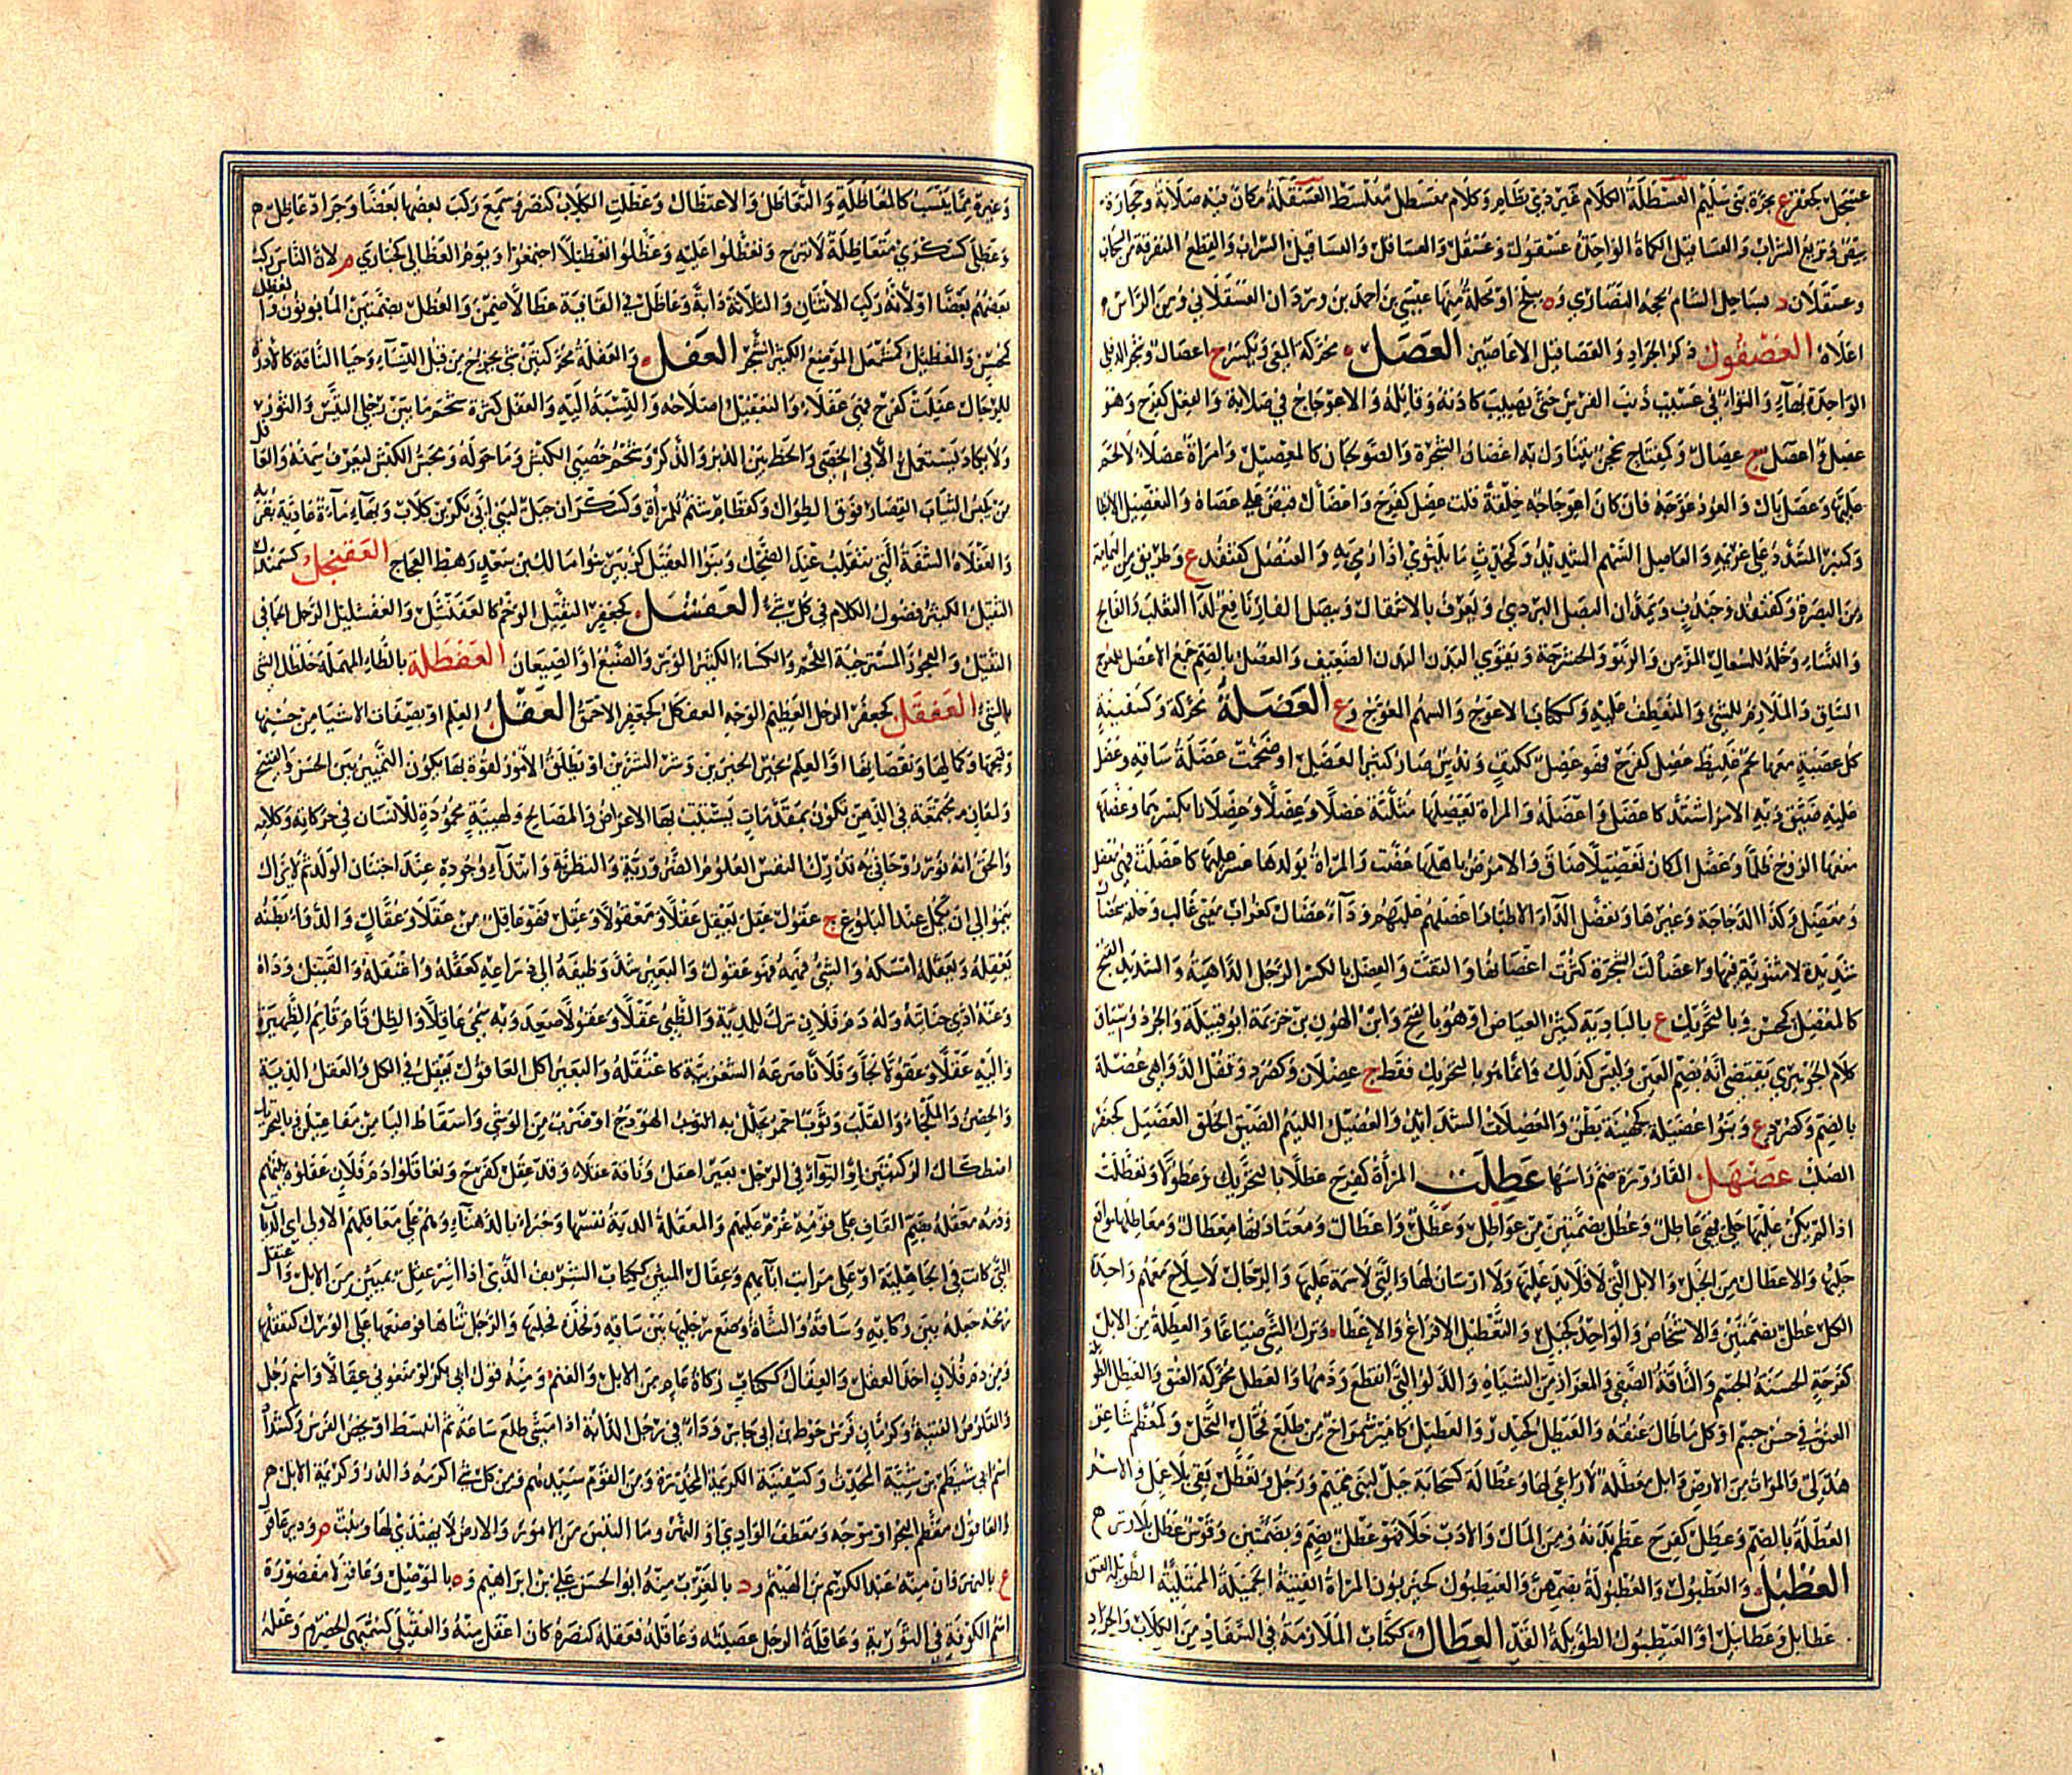 عسجل كجعفر ع بحرة بني سليم العسطلة الكلام غير ذي نظام وكلام معسطل معلسط العسقلة مكان فيه صلابة وحجارة
بيض وتريع السراب والعساقيل الكماة الواحدة عسقول وعسقل والعساقل والعساقيل السراب والقطع المتفرقة من السحاب
وعسقلان د بساحل الشام تحجه النصارى وة ببلخ او محلة منها عيسى بن احمد بن وردان العسقلاني ومن الراس
اعلاه العصقول ذكر الجراد والعصاقيل الاعاصير العصل محركة المعى ويكسر ج اعصال وشجر الدفلى
الواحدة بهاء والتواء في عسيب ذنب الفرس حتى يصيب كاذته وفائله والاعوجاج في صلابة والفعل كفرح وهو
عصل واعصل ج عصال وكمفتاح محجن يتناول به اغصان الشجرة والصولجان كالمعصيل وامراة عصلاء لا لحم
عليها وعصل بال والعود عوجه فان كان اعوجاجه خلقة قلت عصل كفرح واعصال قبض على عصاه والتعصيل الابطا
وكمنبر المتشدد على غريمه والعاصل السهم الشديد وكمحدث ما يلتوي اذا رمي به والعنصل كقنفد ع وطريق من اليمامة
الى البصرة وكقنفد وجندب ويمدان البصل البري ويعرف بالاشقال وبصل الفار نافع لداء الثعلب والفالج
والنساء وخله للسعال المزمن والربو والحشرجة ويقوي البدن الضعيف والعصل بالضم جمع الاعصل للمعوج
الساق والملازم للشئ والمنعطف عليه وككتاب الاعوج والسهم المعوج وع العضلة محركة وكسفينة
كل عصبة معها لحم غليظ عضل كفرح فهو عضل ككتف وندس صار كثير العضل او ضخمت عضلة ساقه وعضل
عليه ضيق وبه الامر اشتد كاعضل واعضله والمراة يعضلها مثلثة عضلا وعضلا وعضلانا بكسرهما وعضلها
منعها الزوج ظلما وعضل المكان تعضيلا ضاق والارض باهلها غصت والمراة بولدها عسر عليها كاعضلت فهي معضل
ومعضل وكذا الدجاجة وغيرها وتعضل الداء الاطباء واعضلهم غلبهم وداء عضال كغراب معي غالب وحلفة عضال
شديدة لا مثنوية فيها واعضالت الشجرة كثرت اغصانها والتفت والعضل بالكسر الرجل الداهية والشديد القبح
كالمعضل كمحسن وبالتحريك ع بالبادية كثير الغياض او هو بالفتح وابن الهون بن خزيمة ابو قبيلة والجرذ وسياق
كلام الجوهري يقتضي انه بضم العين وليس كذلك وانما هو بالتحريك فقط ج عضلان وكصرد وقفل الدواهي عضلة
بالضم وكصرد ع وبنوا عضيلة كجهينة بطن والعضلات الشدائد والعضيل اللئيم الضيق الخلق العضبل كجعفر
الصلب عضهل القارورة صم راسها عطلت المراة كفرح عطلا بالتحريك وعطولا وتعطلت
اذا لم يكن عليها حلي فهي عاطل وعطل بضمتين من عواطل وعطل واعطال ومعتادتها معطال ومعاطلها مواقع
حليها والاعطال من الخيل والابل التي لا قلائد عليها ولا ارسان لها والتي لا سمة عليها والرجال لا سلاح معهم واحد
الكل عطل بضمتين والاشخاص والواحد كجبل والتعطيل الافراغ والاخلا وترك الشئ ضياعا والعطلة من الابل
كفرحة الحسنة الجسم والناقة الصفي والمغزار من الشياه والدلو التي انقطع وذمها والعطل محركة العنق والعيطل الطويلة
العنق في حسن جسم او كل ما طال عنقه والعيطل كحيدر والعطيل كامير شمراخ من طلع فحال النخل وكمعظم شاعر
هذلي والموات من الارض وابل معطلة لا راعي لها وعطالة كسحابة جبل لبني تميم ورجل وتعطل بقي بلا عمل والاسم
العطلة بالضم وعطل كفرح عظم بدنه ومن المال والادب خلا فهو عطل بضم وبضمتين وقوس عطل بلا وتر
العطبل والعطبول والعطبولة بضمهن والعيطبول كحيزبون المراة الفتية الجميلة الممتلئة الطويلة العنق
عطابل وعطابيل او العيطبول الطويلة القد العظال ككتاب الملازمة في السفاد من الكلاب والجراد
وغيره مما ينشب كالمعاظلة والتعاظل والاعتظال وعظلت الكلاب كنصر وسمع ركب بعضها بعضا وجراد عاظل
وعظلى كسكرى متعاظلة لا تبرح وتعظلوا عليه وعظلوا تعظيلا اجتمعوا ويوم العظالى كحبارى م لان الناس ركب
بعضهم بعضا او لانه ركب الاثنان والثلاثة دابة وعاظل في القافية عظالا ضمن والعظل بضمتين المابونون والمعظل
كمحسن والمعظئل كمشمعل الموضع الكثير الشجر العفل والعفلة محركتين شئ يخرج من قبل النساء وحيا الناقة كالادرة
للرجال عفلت كفرح فهي عفلاء والتعفيل اصلاحه والنسبة اليه والعفل كثرة شحم ما بين رجلي التيس والثور
ولا يكاد يستعمل الا في الخصي والخط بين الدبر والذكر وشحم خصيي الكبش وما حوله ومجس الكبش ليعرف سمنه والعافل
من يلبس الثياب القصار فوق الطوال وكقطام شتم للمراة وكسكران جبل لبني ابي بكر بن كلاب وبهاء ماءة عادية بقربه
والعفلاء الشفة التي تنقلب عند الضحك وبنوا العفيل كزبير بنوا مالك بن سعد رهط العجاج العفنجل كسمندل
الثقيل الكثير فضول الكلام في كل شئ العفشل كجعفر الثقيل الوخم كالعفنشل والعفشليل الرجل الجافي
الثقيل والعجوز المسترخية اللحم والكساء الكثير الوبر والضبع او الضبعان العفطلة بالطاء المهملة خلطك الشئ
بالشئ العفقل كجعفر الرجل العظيم الوجه العفكل كجعفر الاحمق العقل العلم او بصفات الاشياء من حسنها
وقبحها وكمالها ونقصانها او العلم بخير الخيرين وشر الشرين او يطلق لامور لقوة بها يكون التمييز بين الحسن والقبح
ولمعان مجتمعة في الذهن تكون بمقدمات يستتب بها الاغراض والمصالح ولهيئة محمودة للانسان في حركاته وكلامه
والحق انه نور روحاني به تدرك النفس العلوم الضرورية والنظرية وابتداء وجوده عند اجتنان الولد ثم لا يزال
ينمو الى ان يكمل عند البلوغ ج عقول عقل يعقل عقلا ومعقولا وعقل فهو عاقل من عقلا وعقال والدواء بطنه
يعقله ويعقله امسكه والشئ فهمه فهو عقول والبعير شد وظيفه الى ذراعيه كعقله واعتقله والقتيل وداه
وعنه ادى جنايته وله دم فلان ترك للدية والظبي عقلا وعقولا صعد وبه سمي عاقلا والظل قام قائم الظهيرة
واليه عقلا وعقولا لجا وفلانا صرعه الشغزبية كاعتقله والبعير اكل العاقول يعقل في الكل والعقل الدية
والحصن والملجاء والقلب وثوب احمر يجلل به الهودج او ضرب من الوشي واسقاط اليا من مفاعيلن وبالتحريك
اصطكاك الركبتين او التواء في الرجل بعير اعقل وناقة عقلاء وقد عقل كفرح وتعاقلوا دم فلان عقلوه بينهم
ودمه معقلة بضم القاف على قومه غرم عليهم والمعقلة الدية نفسها وخبراء بالدهناء وهم على معاقلهم الاولى اي الديات
التي كانت في الجاهلية او على مراتب ابائهم وعقال المئين ككتاب الشريف الذي اذا اسر عقل بمئين من الابل واعتقل
رمحه جعله بين ركابه وساقه والشاة وضع رجليها بين ساقه وفخذه فحلبها والرجل ثناها فوضعها على الورك كتعقلها
ومن دم فلان اخذ العقل والعقال ككتاب زكاة عام من الابل والغنم ومنه قول ابي بكر لو منعوني عقالا واسم رجل
والقلوص الفتية وكرمان فرس حوط بن ابي جابر وداء في رجل الدابة اذا مشى ظلع ساعة ثم انبسط او يخص الفرس وكشداد
اسم ابي شيظم بن شبة المحدث وكسفينة الكريمة المخدرة ومن القوم سيدهم ومن كل شئ اكرمه والدر وكريمة الابل
والعاقول معظم البحر او موجه ومعطف الوادي او النهر وما التبس من الامور والارض لا يهتدى لها ونبت م ودير عاقول
ع بالنهروان منه عبد الكريم بن الهيثم ود بالمغرب منه ابو الحسن علي بن ابراهيم وة بالموصل وعاقولا مقصورة
اسم الكوفة في التورية وعاقلة الرجل عصبته وعاقله فعقله كنصره كان اعقل منه والعقيلى كسميهى الحصرم وعقله